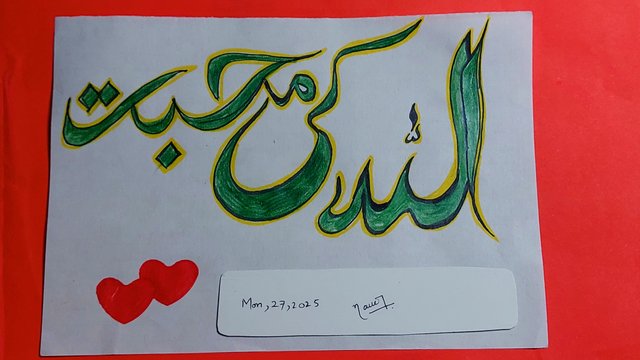 اللہ کی محبت
Mon,27,2025